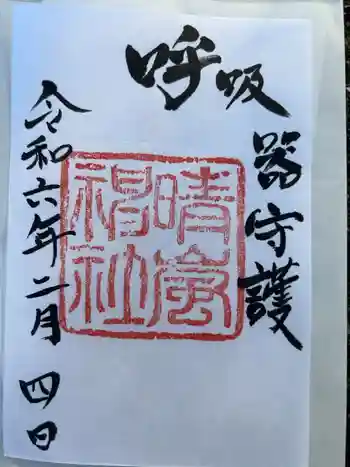 呼吸器守護
晴嵐
神社
令和六年二月四日